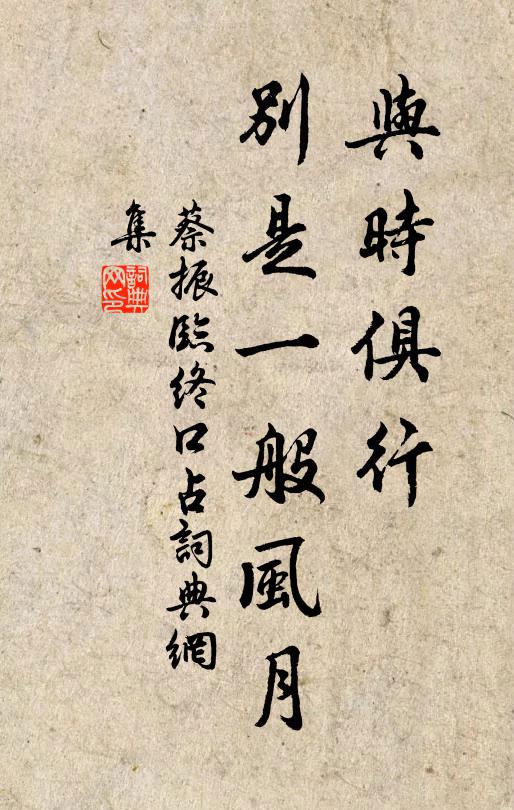 與時俱行
別是一般風月
蔡振臨終口占詞典網
集
詞典
网印